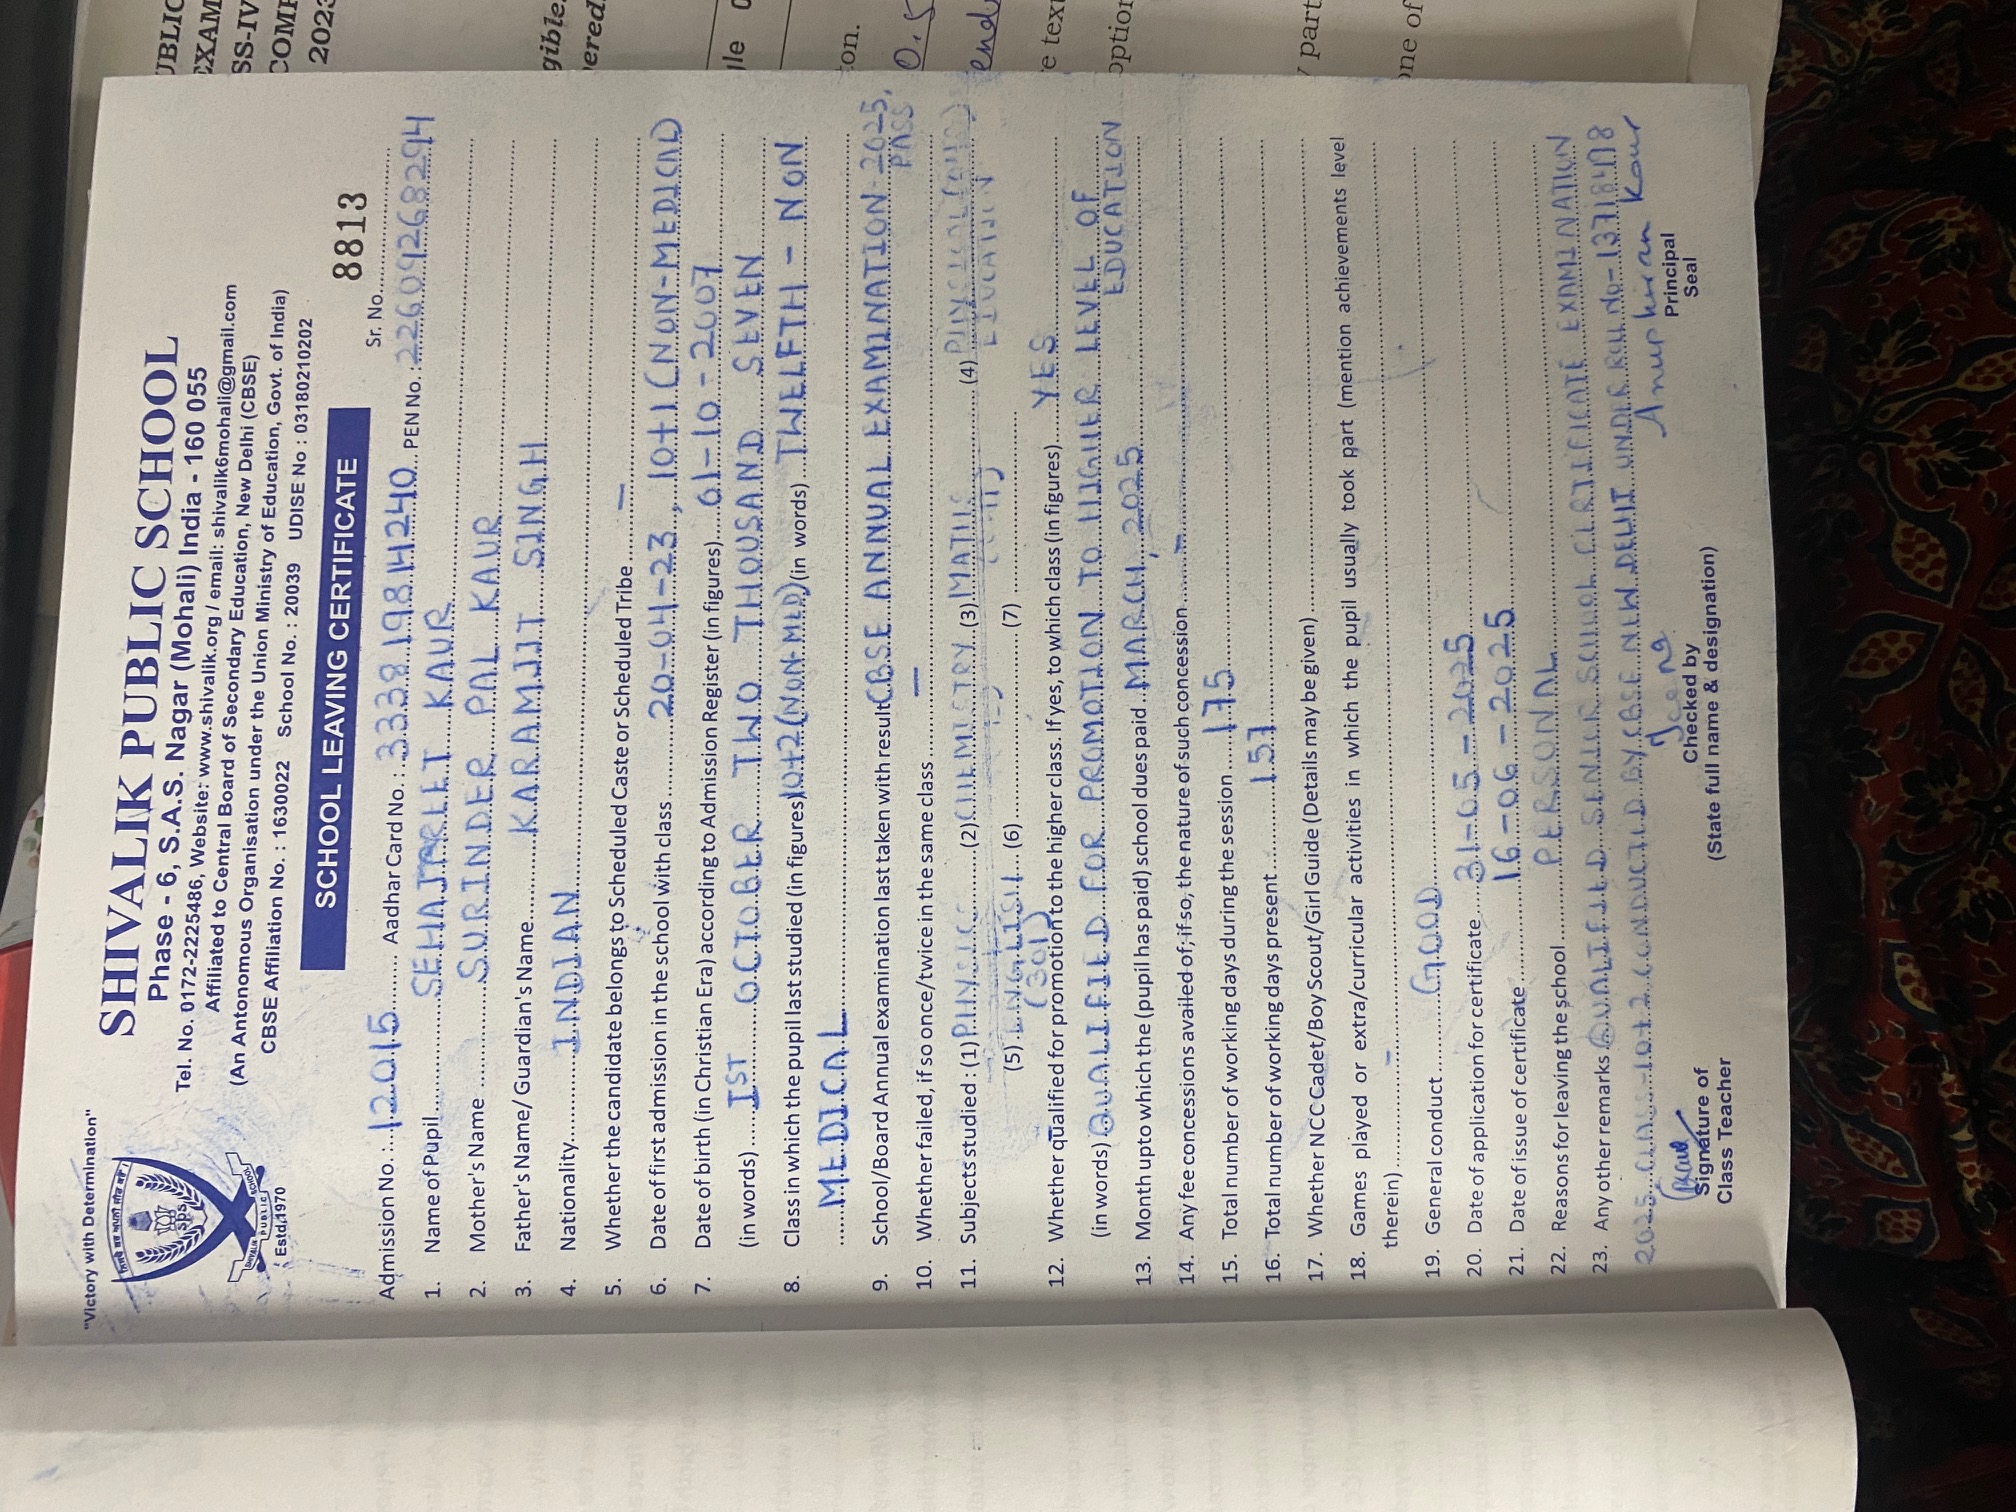 "Victory with Determination"
SHIVALIK PUBLIC SCHOOL
Phase - 6, S.A.S. Nagar (Mohali) India - 160 055
Tel. No. 0172-2225486, Website: www.shivalik.org / email: shivalik6mohali@gmail.com
Affiliated to Central Board of Secondary Education, New Delhi (CBSE)
(An Autonomous Organisation under the Union Ministry of Education, Govt. of India)
CBSE Affiliation No. : 1630022 School No. : 20039 UDISE No : 03180210202
SPS
SHIVALIK PUBLIC SCHOOL
Estd.1970
SCHOOL LEAVING CERTIFICATE
Sr. No. 8813
Admission No. : 12015 Aadhar Card No. : 333819814240 PEN No. : 22609268294
1. Name of Pupil SEHAJPREET KAUR
2. Mother's Name SURINDER PAL KAUR
3. Father's Name/ Guardian's Name KARAMJIT SINGH
4. Nationality INDIAN
5. Whether the candidate belongs to Scheduled Caste or Scheduled Tribe —
6. Date of first admission in the school with class 20-04-23, 10+1 (NON-MEDICAL)
7. Date of birth (in Christian Era) according to Admission Register (in figures) 01-10-2007
(in words) IST OCTOBER TWO THOUSAND SEVEN
8. Class in which the pupil last studied (in figures) 10+2 (NON-MED) (in words) TWELFTH - NON
MEDICAL
9. School/Board Annual examination last taken with result CBSE ANNUAL EXAMINATION-2025,
PASS
10. Whether failed, if so once/twice in the same class —
11. Subjects studied : (1) PHYSICS (2) CHEMISTRY (3) MATHS (4) PHYSICAL
EDUCATION
(5) ENGLISH (6) (7)
(301)
12. Whether qualified for promotion to the higher class. If yes, to which class (in figures) YES
(in words) QUALIFIED FOR PROMOTION TO HIGHER LEVEL OF
EDUCATION
13. Month upto which the (pupil has paid) school dues paid MARCH, 2025
14. Any fee concessions availed of; if so, the nature of such concession -
15. Total number of working days during the session 175
16. Total number of working days present 157
17. Whether NCC Cadet/Boy Scout/Girl Guide (Details may be given)
18. Games played or extra/curricular activities in which the pupil usually took part (mention achievements level
therein) -
19. General conduct GOOD
20. Date of application for certificate 31-05-2025
21. Date of issue of certificate 16-06-2025
22. Reasons for leaving the school PERSONAL
23. Any other remarks QUALIFIED SENIOR SCHOOL CERTIFICATE EXAMINATION
2025 CLASS-10+2 CONDUCTED BY CBSE NEW DELHI UNDER ROLL No-
Anup Kiran Kour
Signature of
Class Teacher
Checked by
(State full name & designation)
Principal
Seal